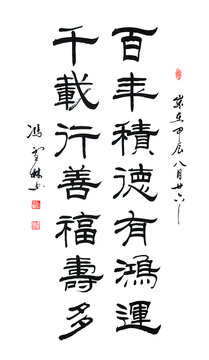 百年積德有鴻運
歲在甲辰八月廿六
千載行善福壽多
馮雪林